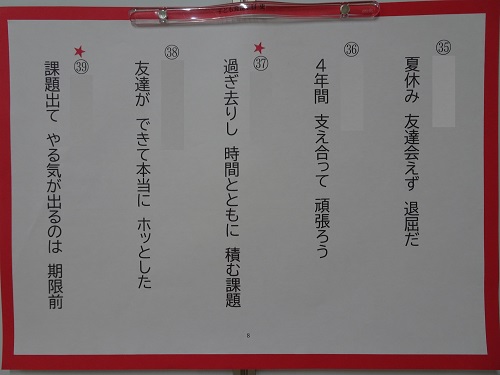 ㉟
夏休み 友達会えず 退屈だ
㊱
4年間 支え合って 頑張ろう
★㊲
過ぎ去りし 時間とともに 積む課題
㊳
友達が できて本当に ホッとした
★㊴
課題出て やる気が出るのは 期限前
8